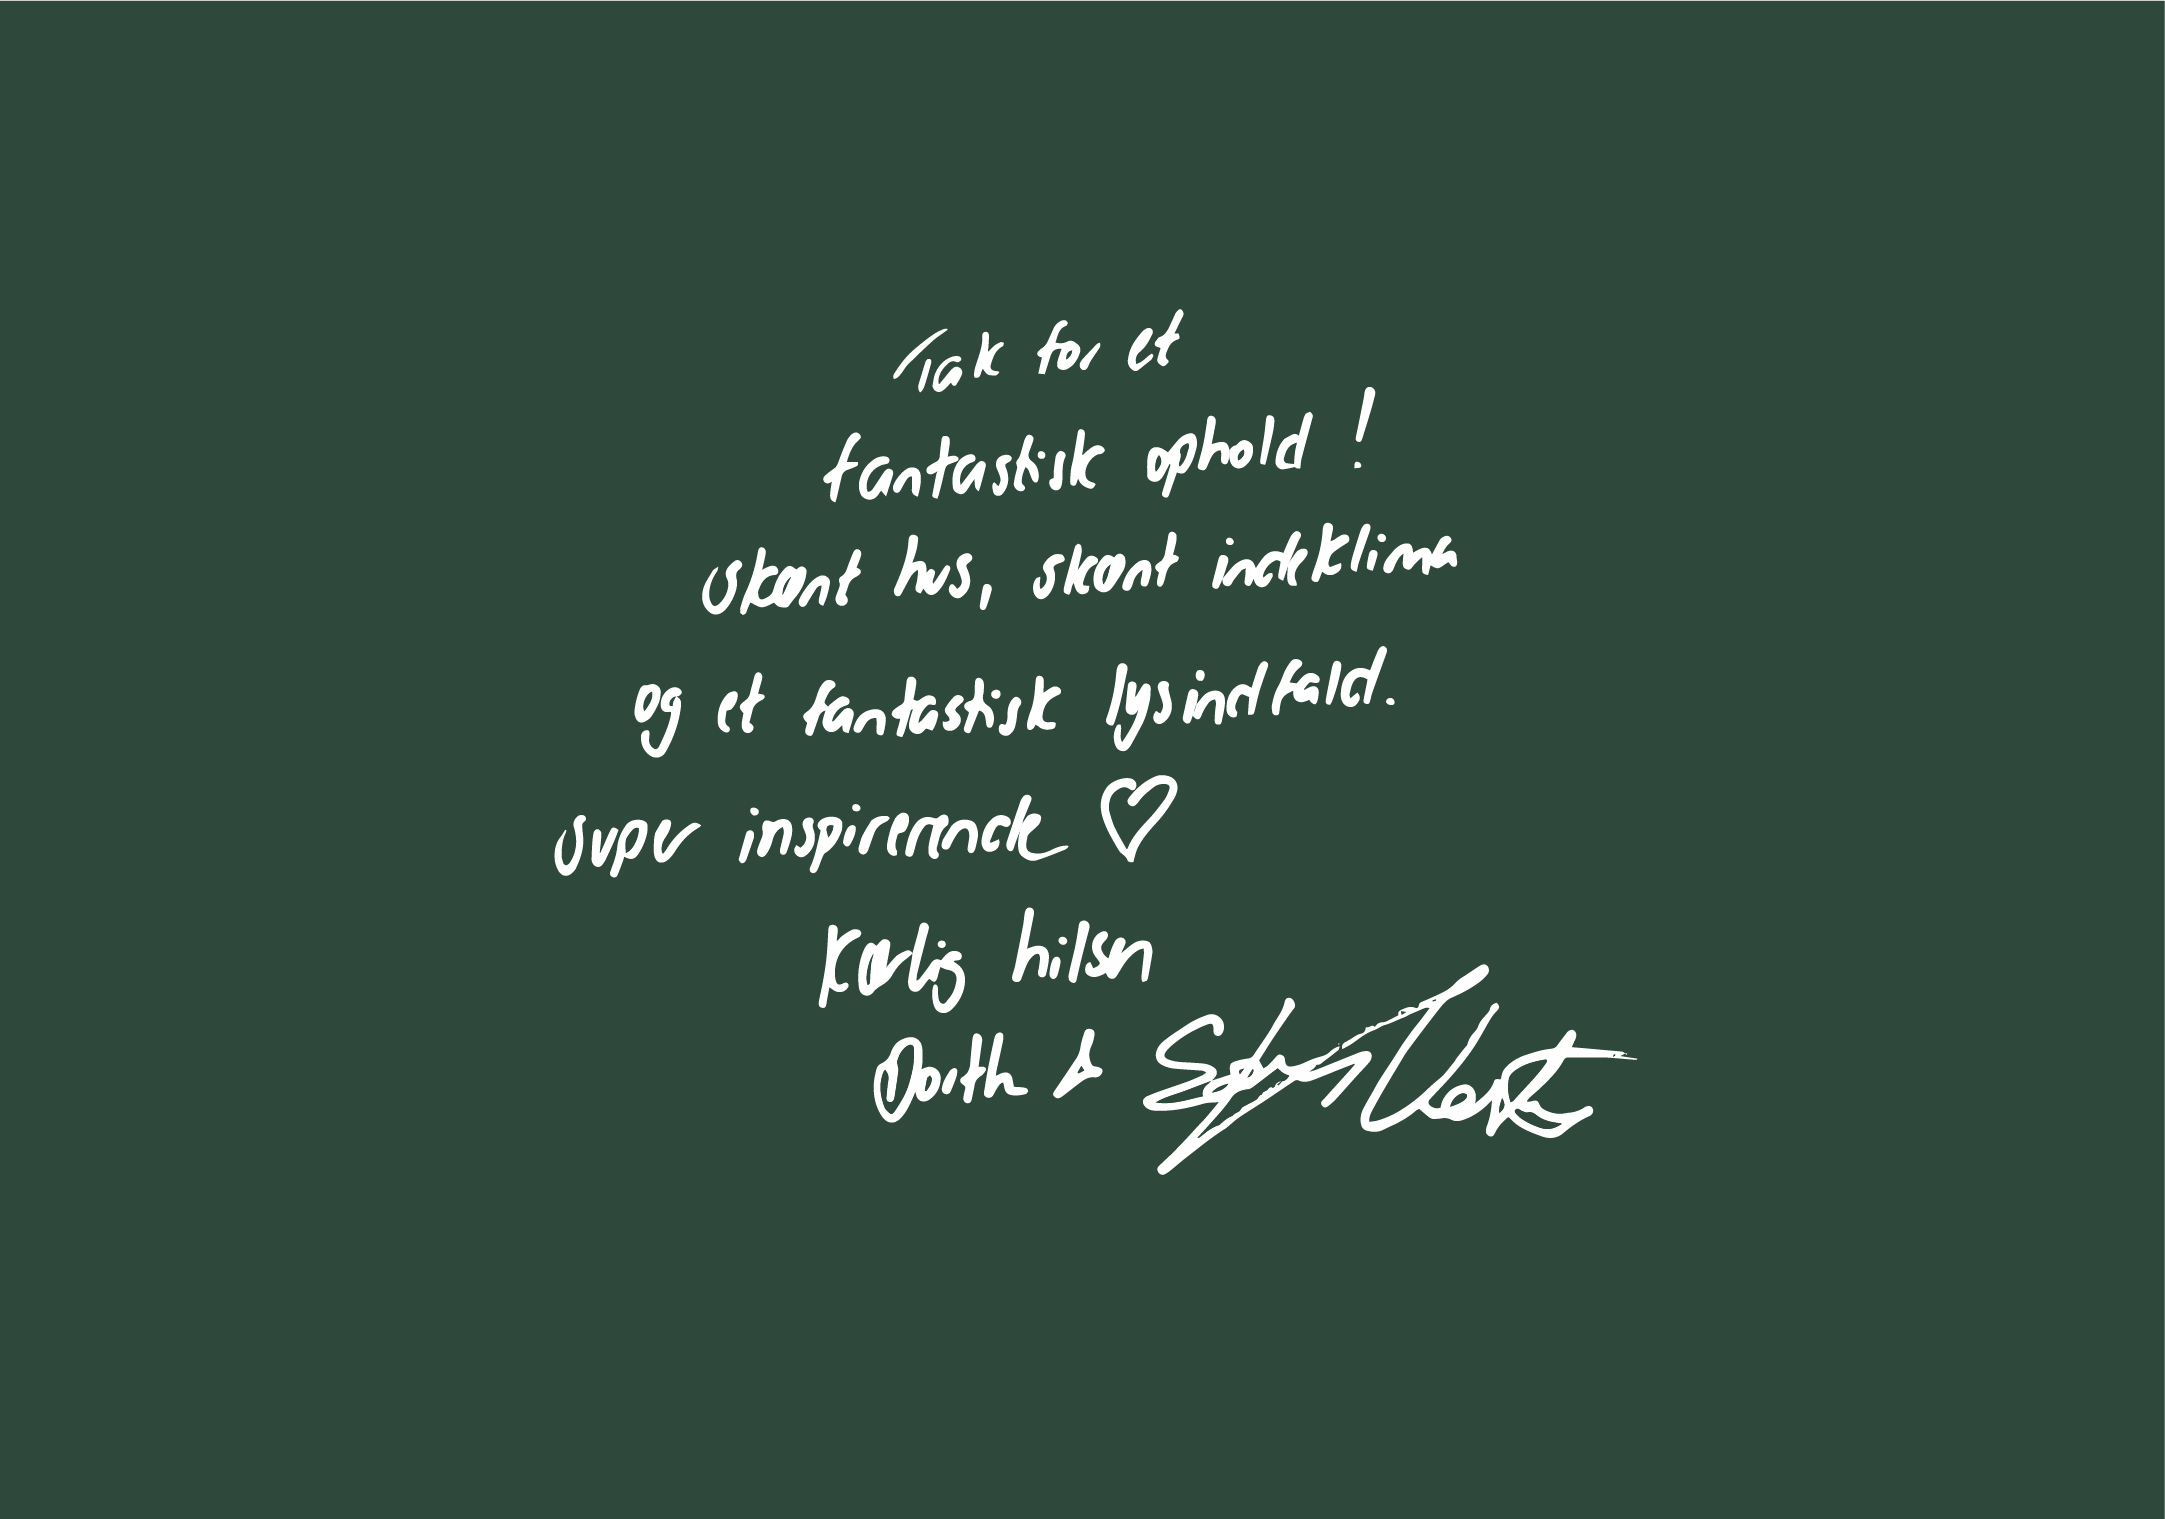 Tak for et
fantastisk ophold!
skønt hus, skønt indeklima
og et fantastisk lysindfald.
super inspirerende ♡
Kærlig hilsen
Dorth &